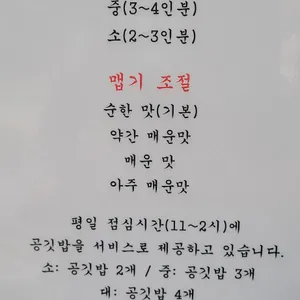 중(3~4인분)
소(2~3인분)
맵기 조절
순한 맛(기본)
약간 매운맛
매운 맛
아주 매운맛
평일 점심시간(11~2시)에
공깃밥을 서비스로 제공하고 있습니다.
소: 공깃밥 2개 / 중: 공깃밥 3개
대: 공깃밥 4개